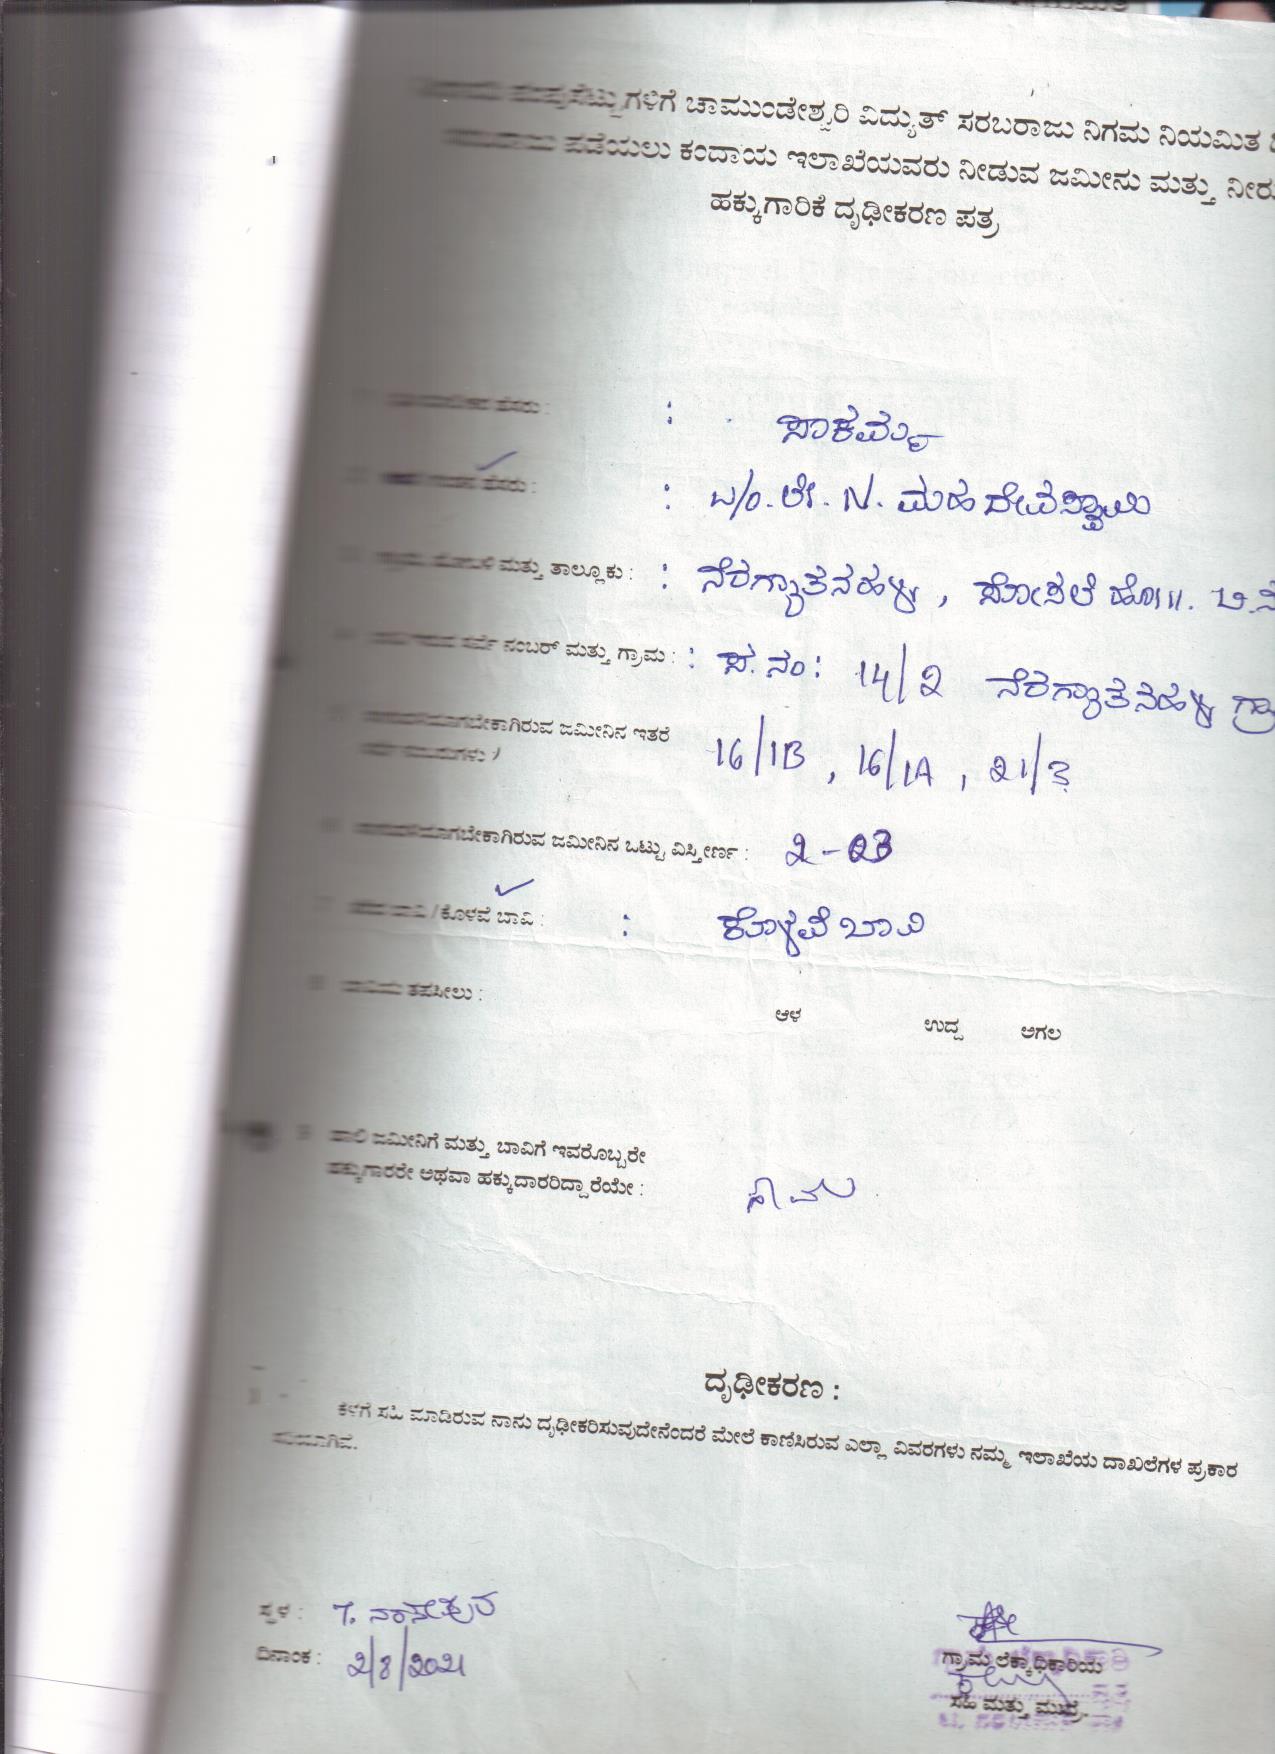 ಗಳಿಗೆ ಚಾಮುಂಡೇಶ್ವರಿ ವಿದ್ಯುತ್ ಸರಬರಾಜು ನಿಗಮ ನಿಯಮಿತ
ಪಡೆಯಲು ಕಂದಾಯ ಇಲಾಖೆಯವರು ನೀಡುವ ಜಮೀನು ಮತ್ತು ನೀರು
ಹಕ್ಕುಗಾರಿಕೆ ದೃಢೀಕರಣ ಪತ್ರ
ಹೆಸರು : : ಸಾಕಮ್ಮ
ಹೆಸರು : : ಲೇ. N. ಮಹದೇವಸ್ವಾಮಿ
ಮತ್ತು ತಾಲ್ಲೂಕು : : ನೆರಗ್ಯಾತನಹಳ್ಳಿ, ಸೋಸಲೆ ಹೋ॥.
ಸರ್ವೆ ನಂಬರ್ ಮತ್ತು ಗ್ರಾಮ : : ಸ. ನಂ: 14/2 ನೆರಗ್ಯಾತನಹಳ್ಳಿ ಗ್ರಾ
ಜಮೀನಿನ ಇತರೆ
16/1B, 16/1A, 21/3
ಜಮೀನಿನ ಒಟ್ಟು ವಿಸ್ತೀರ್ಣ : 2-03
ಬಾವಿ / ಕೊಳವೆ ಬಾವಿ : : ಕೊಳವೆ ಬಾವಿ
ಬಾವಿಯ ತಪಸೀಲು :
ಆಳ ಉದ್ದ ಅಗಲ
ಹಾಲಿ ಜಮೀನಿಗೆ ಮತ್ತು ಬಾವಿಗೆ ಇವರೊಬ್ಬರೇ
ಹಕ್ಕುಗಾರರೇ ಅಥವಾ ಹಕ್ಕುದಾರರಿದ್ದಾರೆಯೇ :
ದೃಢೀಕರಣ :
ಕೆಳಗೆ ಸಹಿ ಮಾಡಿರುವ ನಾನು ದೃಢೀಕರಿಸುವುದೇನೆಂದರೆ ಮೇಲೆ ಕಾಣಿಸಿರುವ ಎಲ್ಲಾ ವಿವರಗಳು ನಮ್ಮ ಇಲಾಖೆಯ ದಾಖಲೆಗಳ ಪ್ರಕಾರ
ಸರಿಯಾಗಿವೆ.
ಸ್ಥಳ : T. ನರಸೀಪುರ
ದಿನಾಂಕ : 2/8/2021
ಗ್ರಾಮ ಲೆಕ್ಕಾಧಿಕಾರಿಯ
ಸಹಿ ಮತ್ತು ಮುದ್ರೆ.